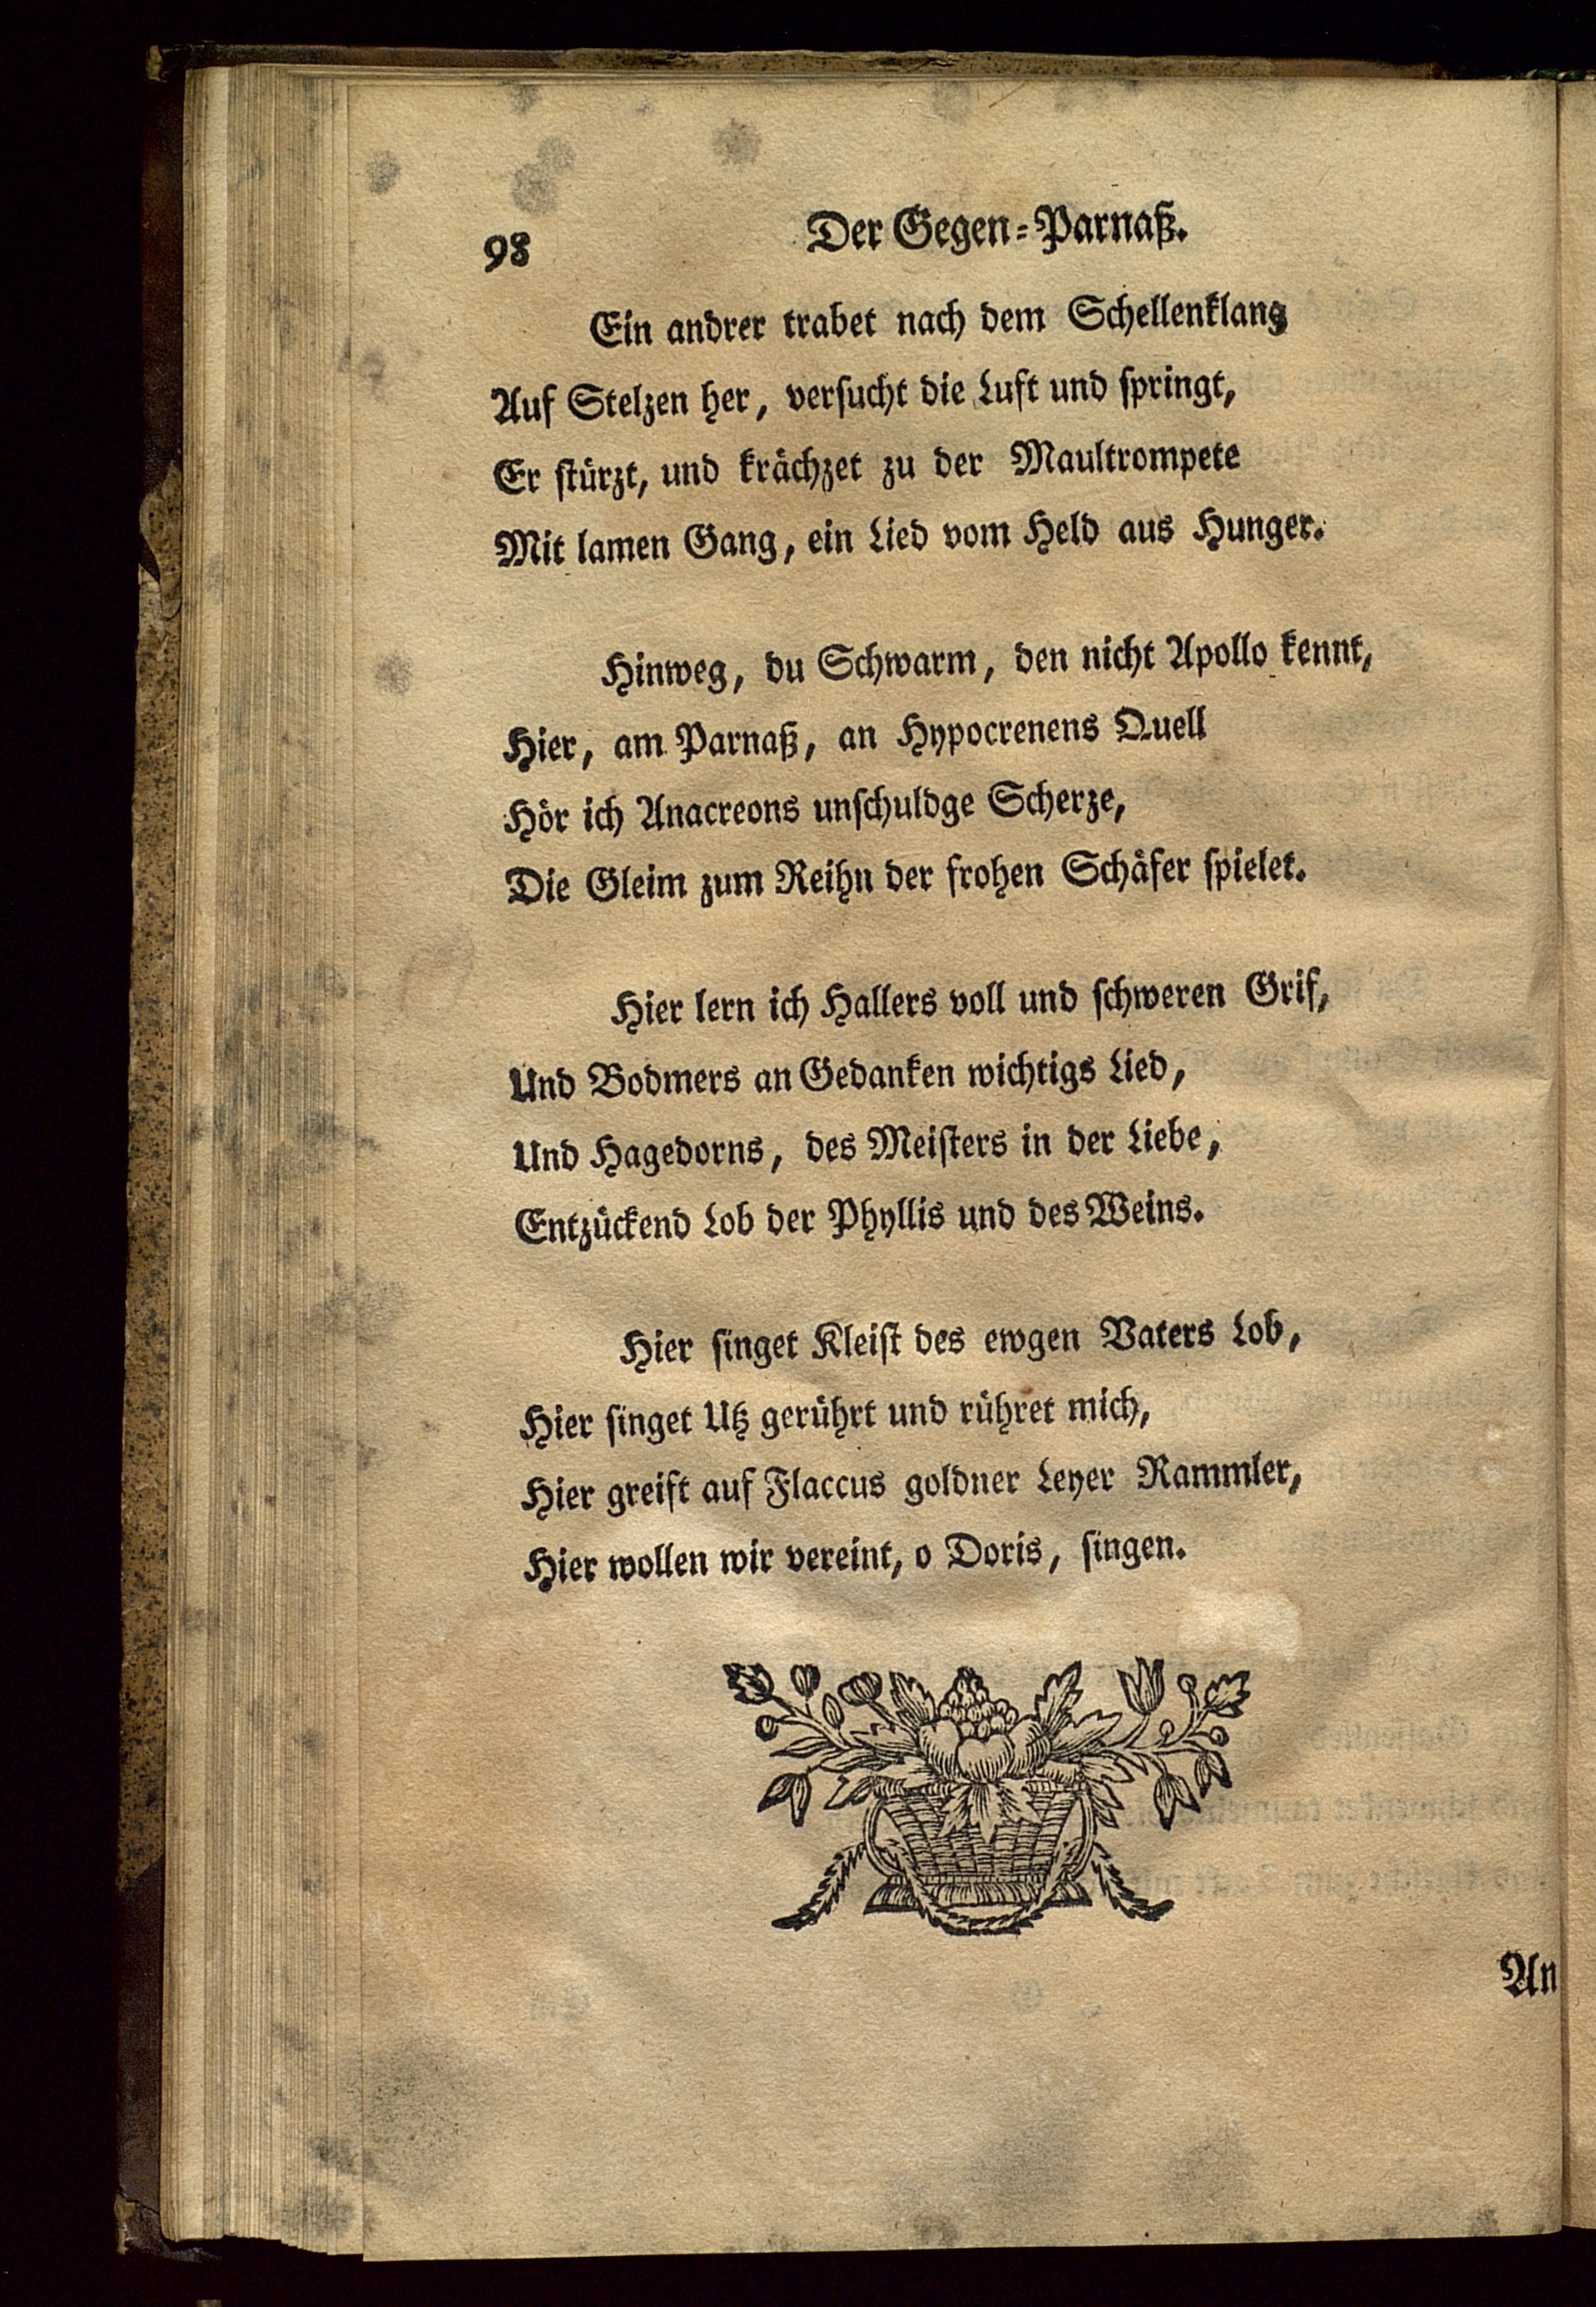 98
Der Gegen-Parnaß.
Ein andrer trabet nach dem Schellenklang
Auf Stelzen her, versucht die Luft und springt,
Er stürzt, und krächzet zu der Maultrompete
Mit lamen Gang, ein Lied vom Held aus Hunger.
Hinweg, du Schwarm, den nicht Apollo kennt,
Hier, am Parnaß, an Hypocrenens Quell
Hör ich Anacreons unschuldge Scherze,
Die Gleim zum Reihn der frohen Schäfer spielet.
Hier lern ich Hallers voll und schweren Grif,
Und Bodmers an Gedanken wichtigs Lied,
Und Hagedorns, des Meisters in der Liebe,
Entzückend Lob der Phyllis und des Weins.
Hier singet Kleist des ewgen Vaters Lob,
Hier singet Utz gerührt und rühret mich,
Hier greift auf Flaccus goldner Leyer Rammler,
Hier wollen wir vereint, o Doris, singen.
An